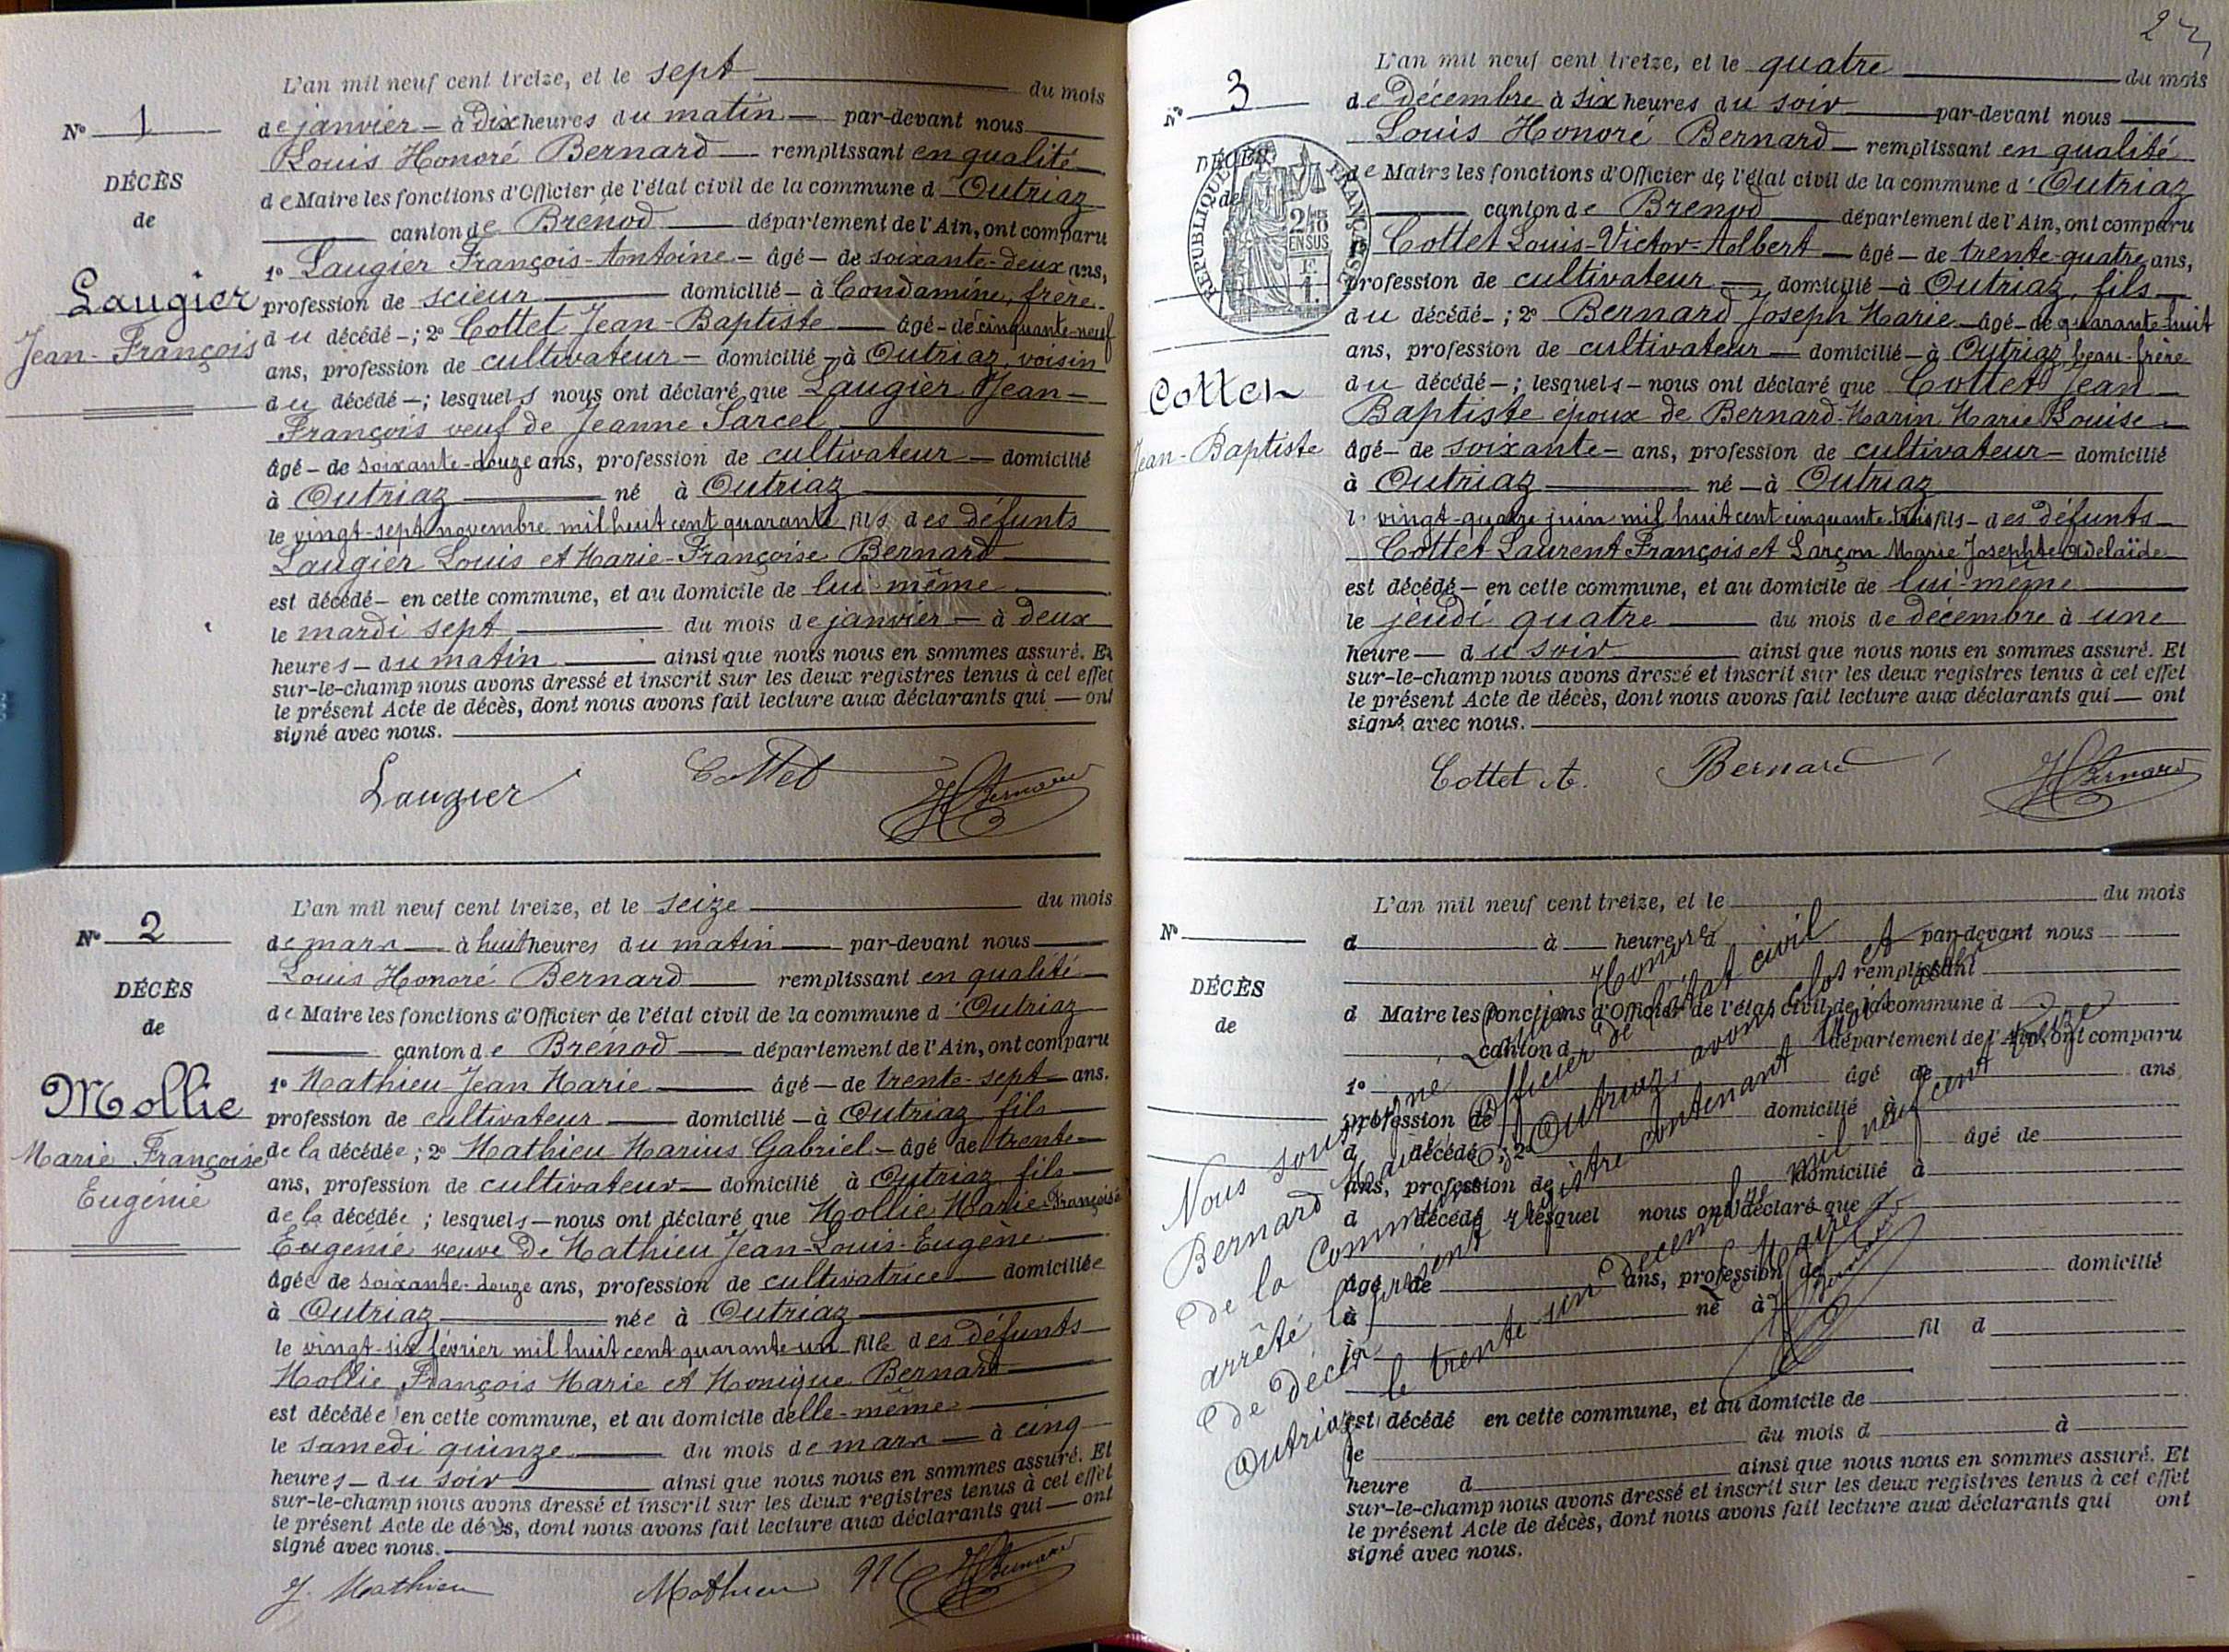 L'an mil neuf cent treize, et le sept du mois
N° 1
de janvier à Dix heures du matin par-devant nous
Louis Honoré Bernard remplissant en qualité
DÉCÈS
de Maire les fonctions d'Officier de l'état civil de la commune d'Outriaz
de
canton de Brenod département de l'Ain, ont comparu
1° Laugier François-Antoine âgé de soixante-deux ans,
Laugier
profession de scieur domicilié à Condamine, frère
Jean-François
du décédé ; 2° Cottet Jean-Baptiste âgé de cinquante-neuf
ans, profession de cultivateur domicilié à Outriaz, voisin
du décédé ; lesquels nous ont déclaré que Laugier Jean-
François veuf de Jeanne Sarcel
âgé de soixante-douze ans, profession de cultivateur domicilié
à Outriaz né à Outriaz
le vingt-sept novembre mil huit cent quarante fils des défunts
Laugier Louis et Marie-Françoise Bernard
est décédé en cette commune, et au domicile de lui-même
le mardi sept du mois de janvier à deux
heures du matin ainsi que nous nous en sommes assuré. Et
sur-le-champ nous avons dressé et inscrit sur les deux registres tenus à cet effet
le présent Acte de décès, dont nous avons fait lecture aux déclarants qui ont
signé avec nous.
Laugier Cottet HBernard
L'an mil neuf cent treize, et le seize du mois
N° 2
de mars à huit heures du matin par-devant nous
Louis Honoré Bernard remplissant en qualité
DÉCÈS
de Maire les fonctions d'Officier de l'état civil de la commune d'Outriaz
de
canton de Brénod département de l'Ain, ont comparu
1° Mathieu Jean Marie âgé de trente-sept ans.
Mollie
profession de cultivateur domicilié à Outriaz, fils
Marie Françoise
de la décédée ; 2° Mathieu Marius Gabriel âgé de trente
Eugénie
ans, profession de cultivateur domicilié à Outriaz, fils
de la décédée ; lesquels nous ont déclaré que Mollie Marie-Françoise
Eugénie veuve de Mathieu Jean-Louis-Eugène
âgée de soixante-douze ans, profession de cultivatrice domiciliée
à Outriaz née à Outriaz
le vingt-six février mil huit cent quarante un fille des défunts
Mollie François Marie et Monique Bernard
est décédée en cette commune, et au domicile delle-même
le samedi quinze du mois de mars à cinq
heures du soir ainsi que nous nous en sommes assuré. Et
sur-le-champ nous avons dressé et inscrit sur les deux registres tenus à cet effet
le présent Acte de décès, dont nous avons fait lecture aux déclarants qui ont
signé avec nous.
J. Mathieu Mathieu M HBernard
2
L'an mil neuf cent treize, et le quatre du mois
N° 3
de Décembre à six heures du soir par-devant nous
Louis Honoré Bernard remplissant en qualité
DÉCÈS
de Maire les fonctions d'Officier de l'état civil de la commune d'Outriaz
de
canton de Brenod département de l'Ain, ont comparu
RÉPUBLIQUE FRANÇAISE
2/10
EN SUS
1° Cottet Louis-Victor-Albert âgé de trente-quatre ans,
profession de cultivateur domicilié à Outriaz, fils
du décédé ; 2° Bernard Joseph Marie âgé de quarante-huit
ans, profession de cultivateur domicilié à Outriaz, beau-frère
Cottet
du décédé ; lesquels nous ont déclaré que Cottet Jean
Baptiste époux de Bernard-Marin Marie Louise
Jean-Baptiste
âgé de soixante ans, profession de cultivateur domicilié
à Outriaz né à Outriaz
l vingt-quatre juin mil huit cent cinquante-trois fils des défunts
Cottet Laurent François et Larçon Marie Josephte Adelaïde
est décédé en cette commune, et au domicile de lui-même
le jeudi quatre du mois de décembre à une
heure du soir ainsi que nous nous en sommes assuré. Et
sur-le-champ nous avons dressé et inscrit sur les deux registres tenus à cet effet
le présent Acte de décès, dont nous avons fait lecture aux déclarants qui ont
signé avec nous.
Cottet A. Bernard HBernard
L'an mil neuf cent treize, et le du mois
N°
d à heure d par-devant nous
remplissant
DÉCÈS
d Maire les fonctions d'Officier de l'état civil de la commune d
de
canton d département de l'Ain, ont comparu
1° âgé de ans,
profession de domicilié à
d décédé ; 2° âgé de
ans, profession de domicilié à
d décédé ; lesquel nous ont déclaré que
âgé de ans, profession de domicilié
à né à
le fil d
est décédé en cette commune, et au domicile de
le du mois d à
heure d ainsi que nous nous en sommes assuré. Et
sur-le-champ nous avons dressé et inscrit sur les deux registres tenus à cet effet
le présent Acte de décès, dont nous avons fait lecture aux déclarants qui ont
signé avec nous.
Nous soussigné Louis Honoré
Bernard Maire Officier de l'état civil
de la Commune d'Outriaz, avons clos et
arrêté le présent registre contenant trois actes
de décès
Outriaz, le trente un Décembre mil neuf cent treize
Le Maire
HBernard